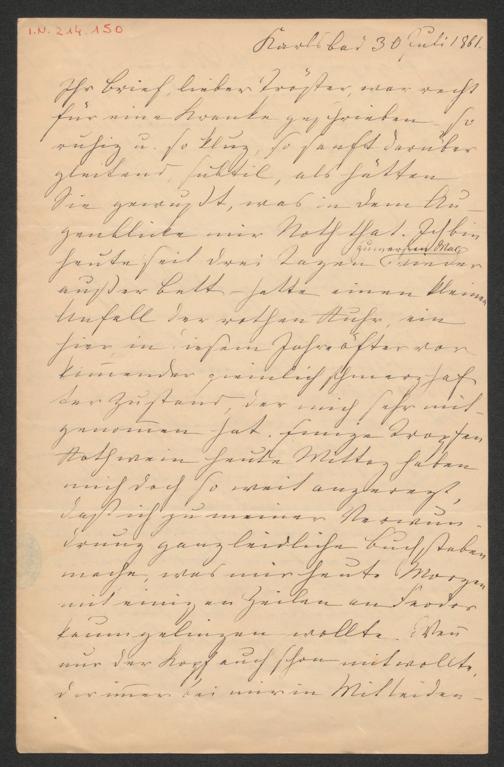 I.N. 214.150
Karlsbad 30 Juli 1861.
Ihr Brief, lieber Tröster, war recht
für eine Kranke geschrieben – so
ruhig u. so klug, so sanft darüber
gleitend, subtil, als hätten
Sie gewußt, was in dem Au-
genblicke mir Noth that. Ich bin
heute seit drei Tagen zum ersten Mal wieder
außer Bett – hatte einen kleinen
Anfall der rothen Ruhr, ein
hier in diesem Jahre öfter vor-
kommender ziemlich schmerzhaf-
ter Zustand, der mich sehr mit-
genommen hat. Einige Tropfen
Rothwein heute Mittag haben
mich doch so weit angeregt,
daß ich zu meiner Verwun-
derung ganz leidliche Buchstaben
mache, was mir heute Morgen
mit einigen Zeilen an Feodor
kaum gelingen wollte. Wenn
nur der Kopf auch schon mitwollte,
der immer bei mir in Mitleiden-